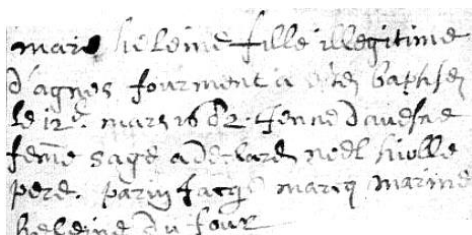 marie heleine fille illegitime
d'agnes fourment a estez baptisez
le 12e. mars 1682. Jenne davesne
feme sage a declarez noel hiolle
pere. parin Jacq marcq marinne
heleine du four